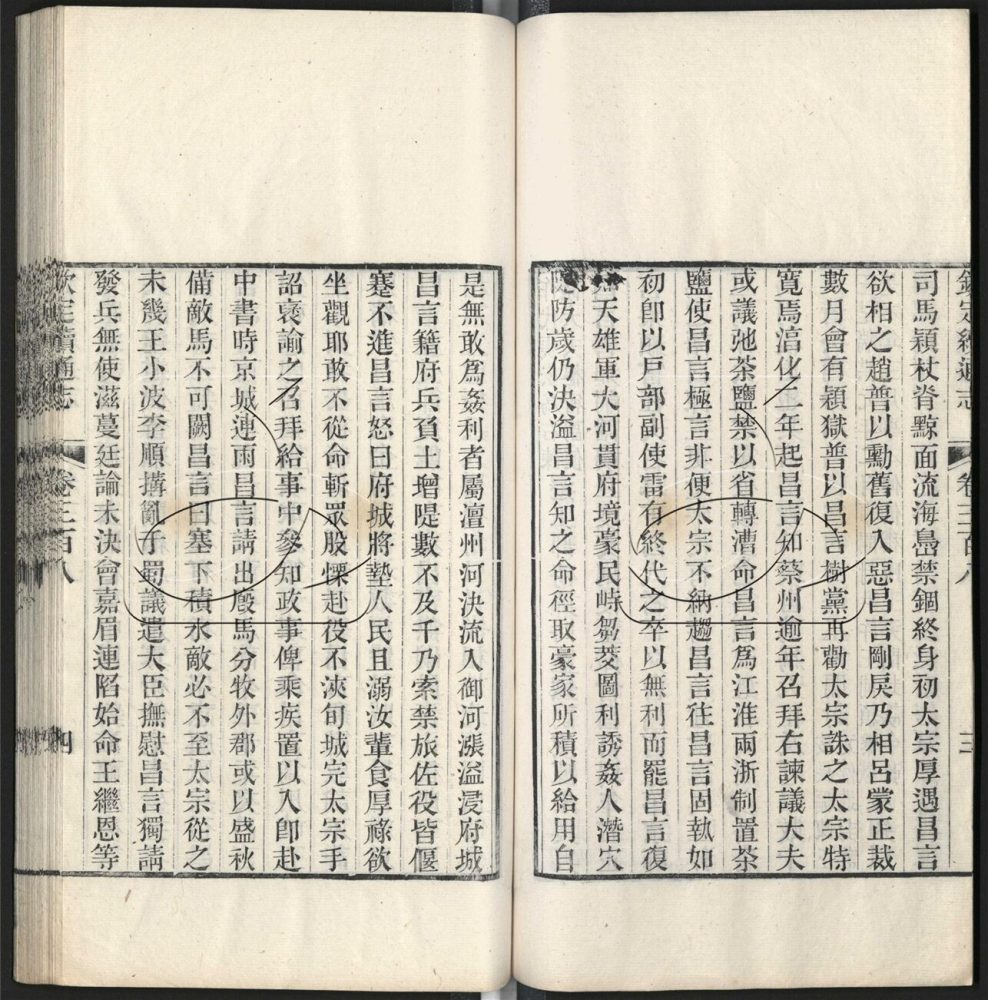 欽定續通志 卷三百八 三
司馬潁杖脊黥面流海島禁錮終身初太宗厚遇昌言
欲相之趙普以勳舊復入惡昌言剛戾乃相呂蒙正裁
數月會有潁獄普以昌言樹黨再勸太宗誅之太宗特
寬焉淳化二年起昌言知蔡州逾年召拜右諫議大夫
或議弛茶鹽禁以省轉漕命昌言爲江淮兩浙制置茶
鹽使昌言極言非便太宗不納趨昌言往昌言固執如
初卽以戶部副使雷有終代之卒以無利而罷昌言復
天雄軍大河貫府境豪民峙芻茭圖利誘姦人潛穴
防歲仍決溢昌言知之命徑取豪家所積以給用自
是無敢爲姦利者屬澶州河決流入御河漲溢浸府城
昌言籍府兵負土增隄數不及千乃索禁旅佐役皆偃
蹇不進昌言怒曰府城將墊人民且溺汝輩食厚祿欲
坐觀耶敢不從命斬眾股慄赴役不浹旬城完太宗手
詔褒諭之召拜給事中參知政事俾乘疾置以入卽赴
中書時京城連雨昌言請出廐馬分牧外郡或以盛秋
備敵馬不可闕昌言曰塞下積水敵必不至太宗從之
未幾王小波李順搆亂于蜀議遣大臣撫慰昌言獨請
發兵無使滋蔓廷論未決會嘉眉連陷始命王繼恩等
欽定續通志 卷三百八 四